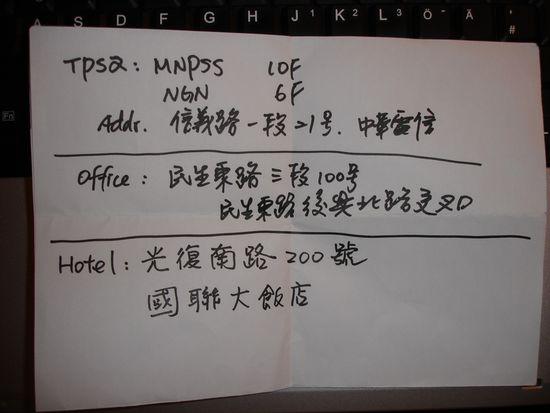 A S D F G H J¹ K² L³ Ö Ä #
Fn
TPS2: MNPSS 10F
NGN 6F
Addr. 信義路一段21号. 中華電信
Office: 民生東路三段100号
民生東路復興北路交叉口
Hotel: 光復南路200號
國聯大飯店